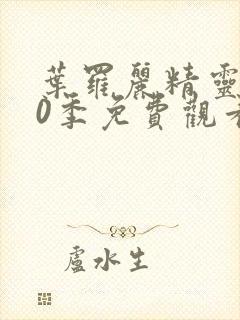 葉羅麗精靈
0季免費觀看
盧水生